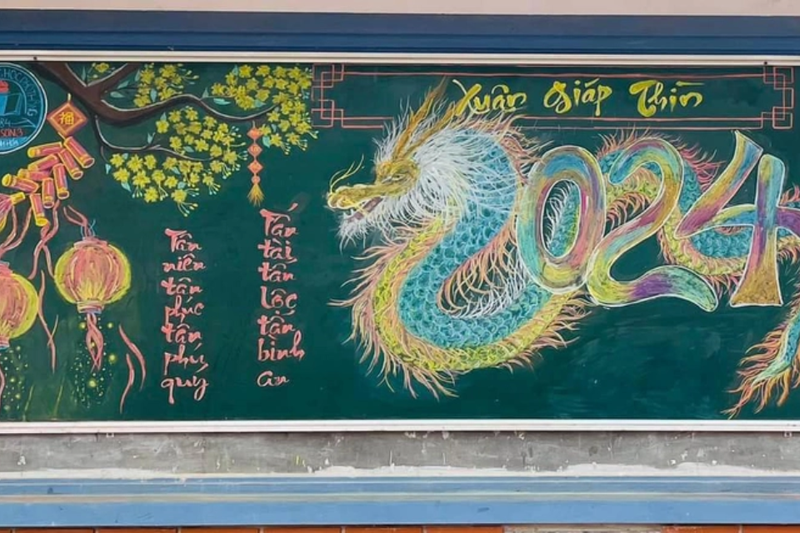 Xuân Giáp Thìn
024
Tân
niên
tân
phúc
tân
phú
quý
Tấn
tài
tấn
lộc
tấn
bình
an